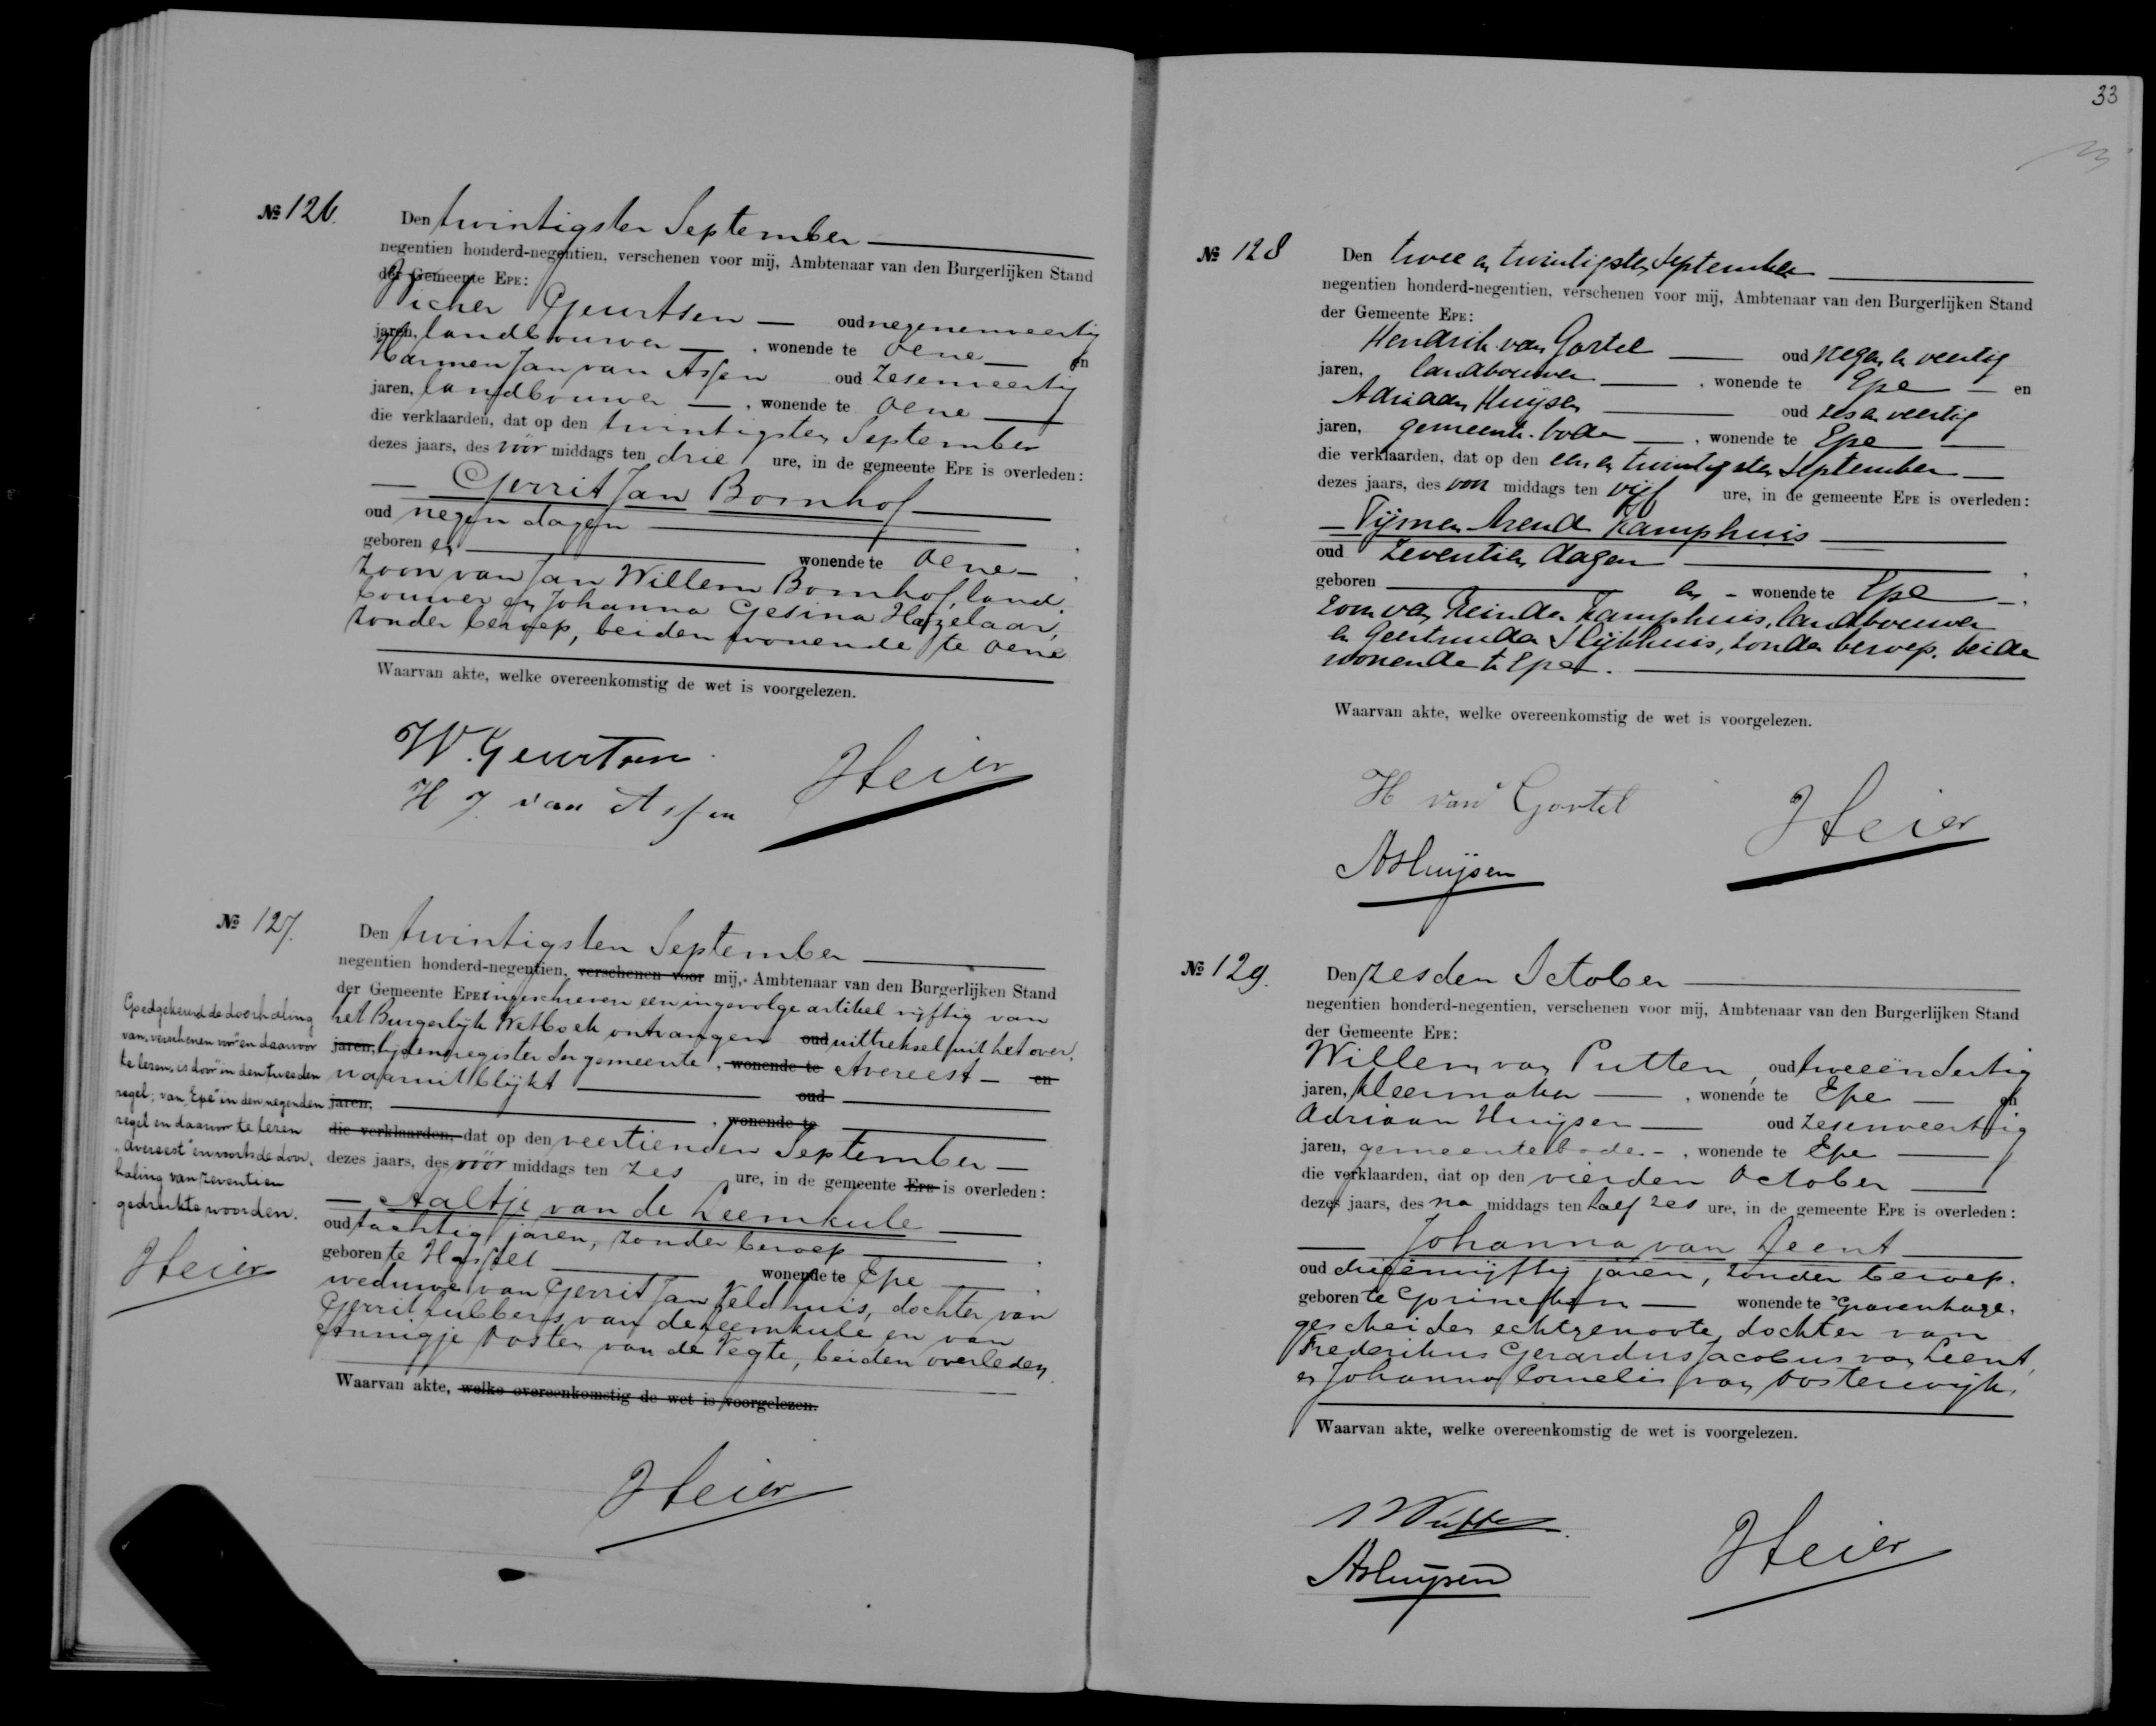 № 126.
Den twintigsten September
negentien honderd-negentien, verschenen voor mij, Ambtenaar van den Burgerlijken Stand
der Gemeente EPE:
Wicher Geurtsen — oud negenenveertig
jaren, landbouwer —, wonende te Oene — en
Harmen Jan van Assen oud zesenveertig
jaren, landbouwer —, wonende te Oene —
die verklaarden, dat op den twintigsten September
dezes jaars, des vóór middags ten drie ure, in de gemeente EPE is overleden:
— Gerrit Jan Bomhof —
oud negen dagen
geboren en — wonende te Oene —
zoon van Jan Willem Bomhof, land-
bouwer en Johanna Gesina Hazelaar,
zonder beroep, beiden wonende te Oene
Waarvan akte, welke overeenkomstig de wet is voorgelezen.
W. Geurtsen
H J. van Assen
Heier
№ 127.
Den twintigsten September
negentien honderd-negentien, verschenen voor mij, Ambtenaar van den Burgerlijken Stand
der Gemeente EPE ingeschreven een ingevolge artikel vijftig van
het Burgerlijk Wetboek ontvangen oud uittreksel uit het over-
jaren, lijdensregister der gemeente, wonende te Avereest — en
waaruit blijkt — oud
jaren, — , wonende te
die verklaarden, dat op den veertienden September —
dezes jaars, des vóór middags ten zes ure, in de gemeente EPE is overleden:
— Aaltje van de Leemkule —
oud tachtig jaren, zonder beroep
geboren te Hasselt — wonende te Epe —
weduwe van Gerrit Jan Veldhuis, dochter van
Gerrit Lubbers van de Leemkule en van
Annigje Vosten van de Vegte, beiden overleden
Waarvan akte, welke overeenkomstig de wet is voorgelezen.
Heier
Goedgekeurd de doorhaling
van "verschenen voor" en daarvoor
te lezen "is door" in den tweeden
regel; van "Epe" in den negenden
regel en daarvoor te lezen
"Avereest" en voorts de door-
haling van zeventien
gedrukte woorden.
Heier
33
№ 128
Den twee en twintigsten September
negentien honderd-negentien, verschenen voor mij, Ambtenaar van den Burgerlijken Stand
der Gemeente EPE:
Hendrik van Gortel — oud negen en veertig
jaren, landbouwer —, wonende te Epe — en
Adriaan Huijsen — oud zes en veertig
jaren, gemeente-bode —, wonende te Epe
die verklaarden, dat op den een en twintigsten September —
dezes jaars, des voor middags ten vijf ure, in de gemeente EPE is overleden:
— Tijmen Arend Kamphuis —
oud zeventien dagen
geboren — en — wonende te Epe —,
zoon van Reinder Kamphuis, landbouwer
en Geertruida Slijkhuis, zonder beroep, beide
wonende te Epe.
Waarvan akte, welke overeenkomstig de wet is voorgelezen.
H van Gortel
AHuijsen
Heier
№ 129.
Den zesden October
negentien honderd-negentien, verschenen voor mij, Ambtenaar van den Burgerlijken Stand
der Gemeente EPE:
Willem van Putten, oud tweeëndertig
jaren, kleermaker —, wonende te Epe — en
Adriaan Huijsen — oud zesenveertig
jaren, gemeentebode —, wonende te Epe —
die verklaarden, dat op den vierden October —
dezes jaars, des na middags ten half zes ure, in de gemeente EPE is overleden:
— Johanna van Leent —
oud drieënvijftig jaren, zonder beroep.
geboren te Gorinchem — wonende te 's Gravenhage,
gescheiden echtgenoote, dochter van
Frederikus Gerardus Jacobus van Leent,
en Johanna Cornelia van Oosterwijk.
Waarvan akte, welke overeenkomstig de wet is voorgelezen.
AHuijsen
Heier